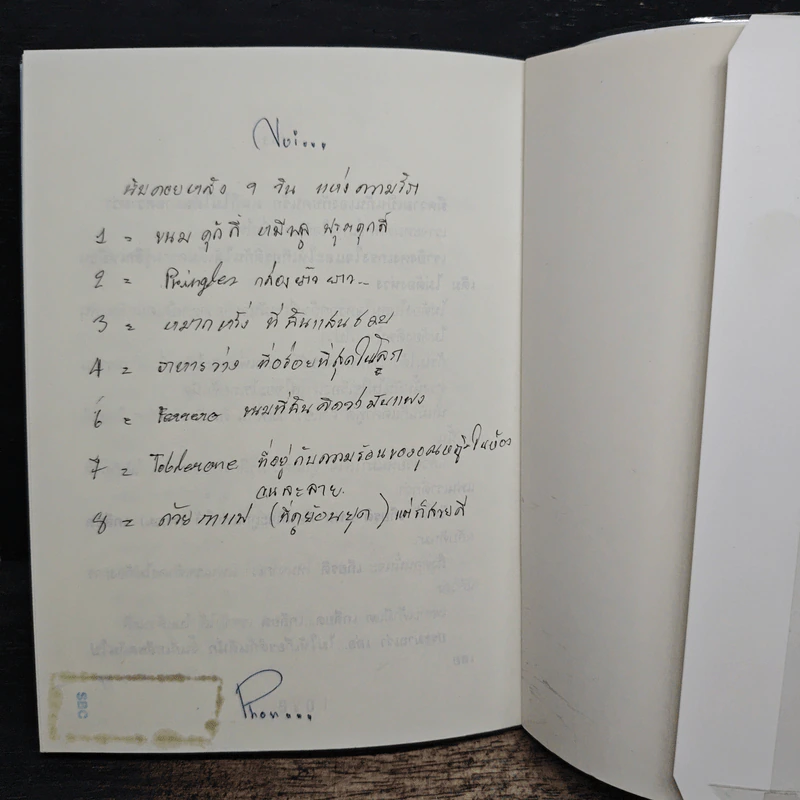 Noi...
นับถอยหลัง 9 วัน แห่งความรัก
1 = ขนม คุกกี้ หมีพูู ฟรุตคุกกี้
2 = Pringles กล่องยาว ยาว...
3 = หมากฝรั่ง ที่ฉันแสนชอบ
4 = อาหารว่าง ที่อร่อยที่สุดในโลก
6 = Ferrero ขนมที่ฉันคิดว่ามันแพง
7 = Toblerone ที่อยู่กับความร้อนของอุณหภูมิในห้อง
จนละลาย.
8 = ถ้วยกาแฟ (ที่ดูย้อนยุค) แต่ก็สวยดี
SBC
Phon...